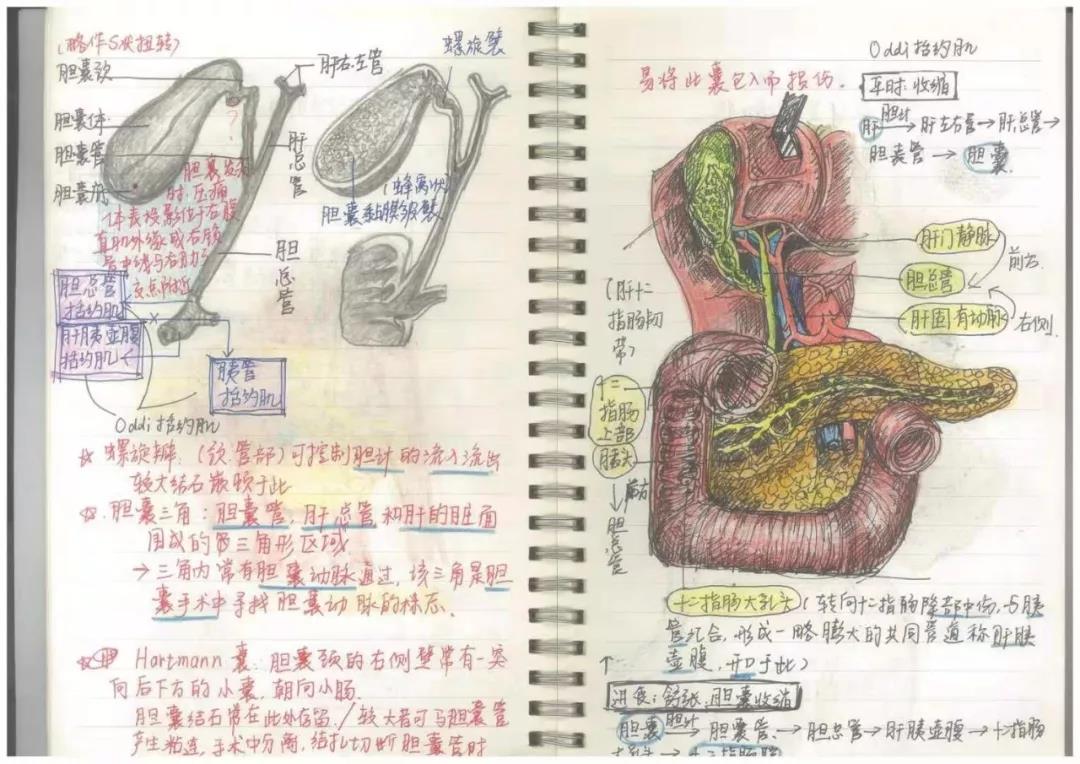 (略作S状扭转)
胆囊颈
胆囊体
胆囊管
胆囊底
肝右左管
肝总管
胆总管
?
胆囊发炎
时,压痛
体表投影位于右腹
直肌外缘或右锁
骨中线与右肋弓
交点附近
胆总管
括约肌
肝胰壶腹
括约肌
胰管
括约肌
Oddi括约肌
螺旋襞
(蜂窝状)
胆囊黏膜皱襞
☆ 螺旋瓣.(颈.管部)可控制胆汁的流入流出
较大结石嵌顿于此
☆.胆囊三角:胆囊管,肝总管和肝的脏面
围成的三角形区域
→三角内常有胆囊动脉通过,该三角是胆
囊手术中寻找胆囊动脉的标志.
Hartmann囊:胆囊颈的右侧壁常有一突
向后下方的小囊,朝向小肠.
胆囊结石常在此处存留./较大者可与胆囊管
产生粘连,手术中分离,结扎切断胆囊管时
易将此囊包入而损伤.
Oddi括约肌
平时:收缩
肝 胆汁→肝左右管→肝总管→
胆囊管→胆囊.
肝门静脉
前方
胆总管
肝固有动脉
右侧
(肝十二
指肠韧
带)
十二
指肠
上部
胰头
前方
胆总管
十二指肠大乳头(转向十二指肠降部中份,与胰
管汇合,形成一略膨大的共同管道称肝胰
壶腹,开口于此)
进食:舒张.胆囊收缩
胆囊 胆汁→胆囊管→胆总管→肝胰壶腹→十二指肠